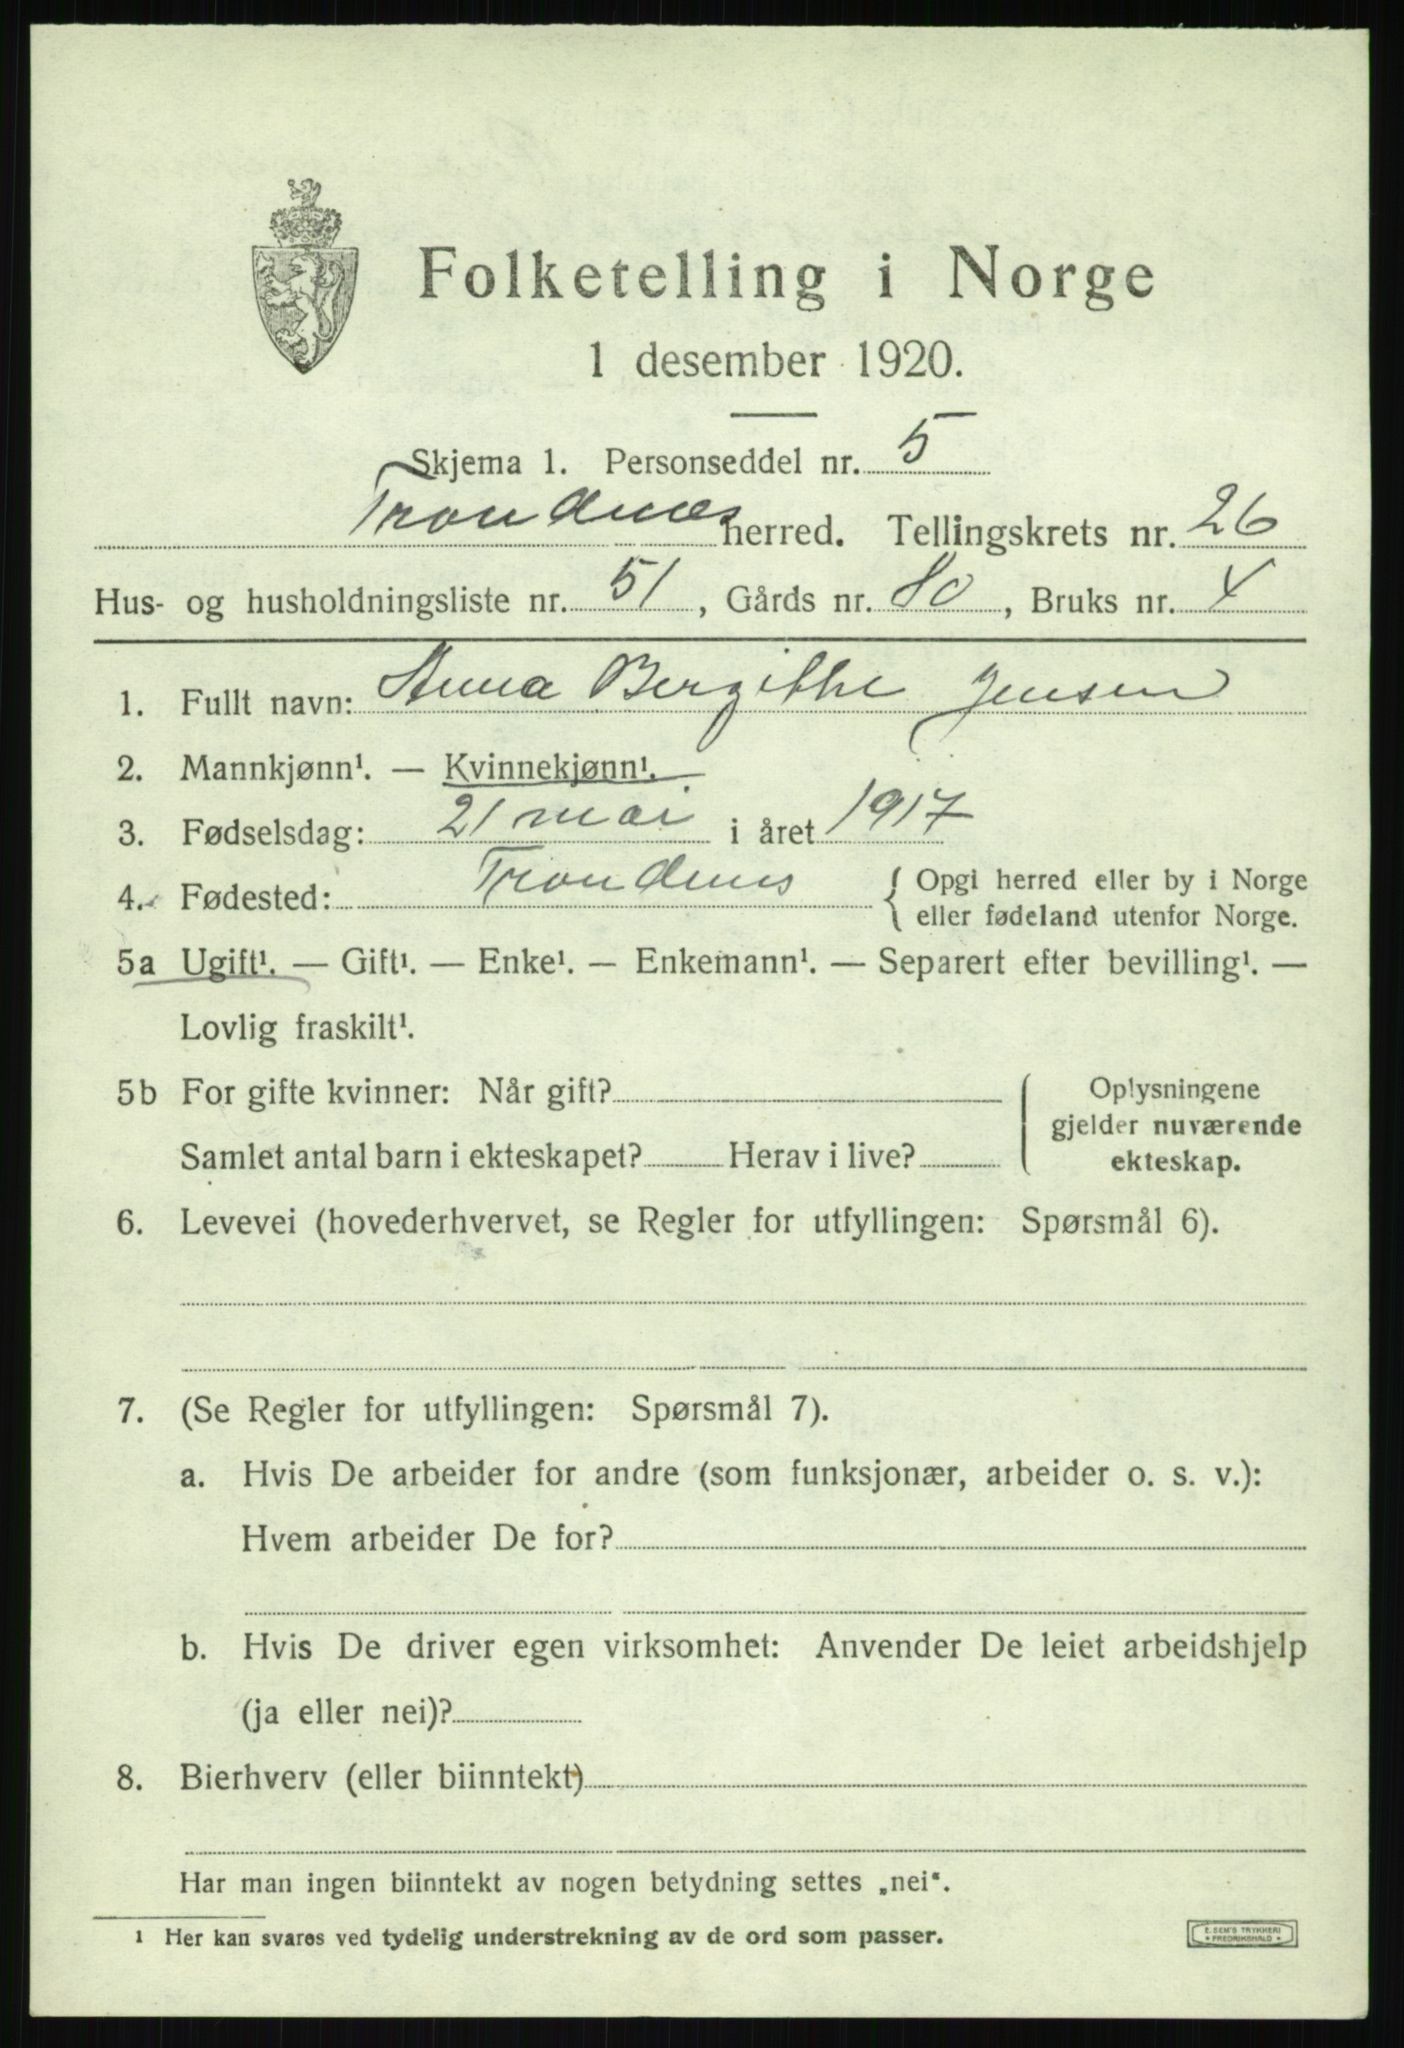 Folketelling i Norge
1 desember 1920.
Skjema 1. Personseddel nr. 5
Trondenes herred. Tellingskrets nr. 26
Hus- og husholdningsliste nr. 51, Gårds nr. 80, Bruks nr. 4
1. Fullt navn: Anna Bergithe Jensen
2. Mannkjønn¹. — Kvinnekjønn¹.
3. Fødselsdag: 21 mai i året 1917
4. Fødested: Trondenes { Opgi herred eller by i Norge
eller fødeland utenfor Norge.
5a Ugift¹. — Gift¹. — Enke¹. — Enkemann¹. — Separert efter bevilling¹. —
Lovlig fraskilt¹.
5b For gifte kvinner: Når gift?
Samlet antal barn i ekteskapet? Herav i live?
Oplysningene
gjelder nuværende
ekteskap.
6. Levevei (hovederhvervet, se Regler for utfyllingen: Spørsmål 6).
7. (Se Regler for utfyllingen: Spørsmål 7).
a. Hvis De arbeider for andre (som funksjonær, arbeider o. s. v.):
Hvem arbeider De for?
b. Hvis De driver egen virksomhet: Anvender De leiet arbeidshjelp
(ja eller nei)?
8. Bierhverv (eller biinntekt)
Har man ingen biinntekt av nogen betydning settes „nei“.
¹ Her kan svares ved tydelig understrekning av de ord som passer.
E. SEM'S TRYKKERI
• FREDRIKSHALD •